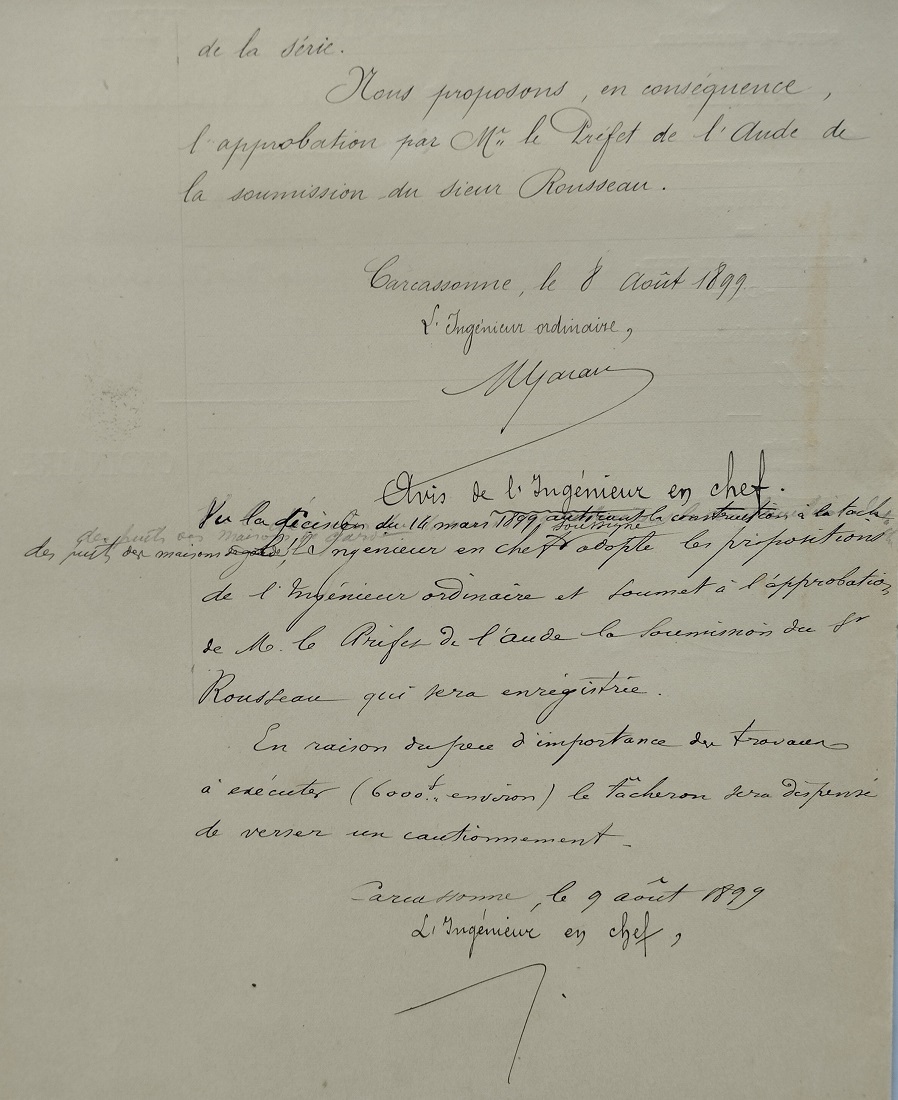 de la série.
Nous proposons, en conséquence,
l'approbation par Mr le Préfet de l'Aude de
la soumission du sieur Rousseau.
Carcassonne, le 8 Août 1899
L'Ingénieur ordinaire,
Avis de l'Ingénieur en chef.
Vu la décision du 14 mars 1899 autorisant la construction à la tâche
des puits des maisons de garde, L'Ingénieur en chef soussigné adopte les propositions
de l'Ingénieur ordinaire et soumet à l'approbation
de M. le Préfet de l'Aude la soumission du Sr
Rousseau qui sera enregistrée.
En raison du peu d'importance des travaux
à exécuter (6000f environ) le tâcheron sera dispensé
de verser un cautionnement.
Carcassonne, le 9 août 1899
L'Ingénieur en chef,